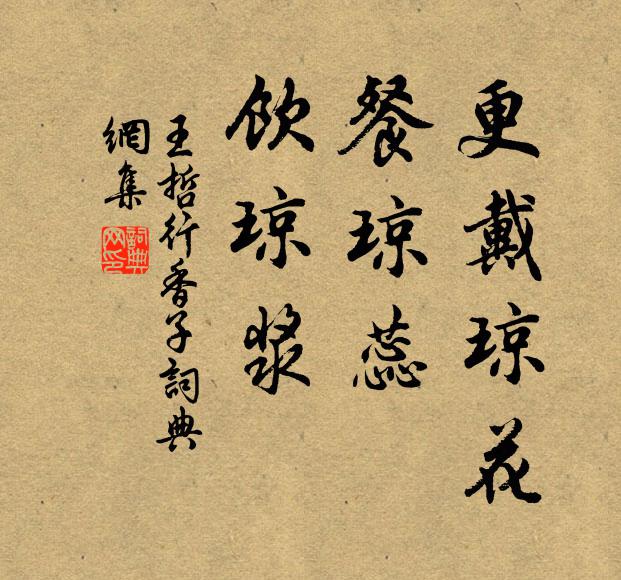 更戴琼花
餐琼蕊
饮琼浆
王哲行香子詞典
網集
詞典網印